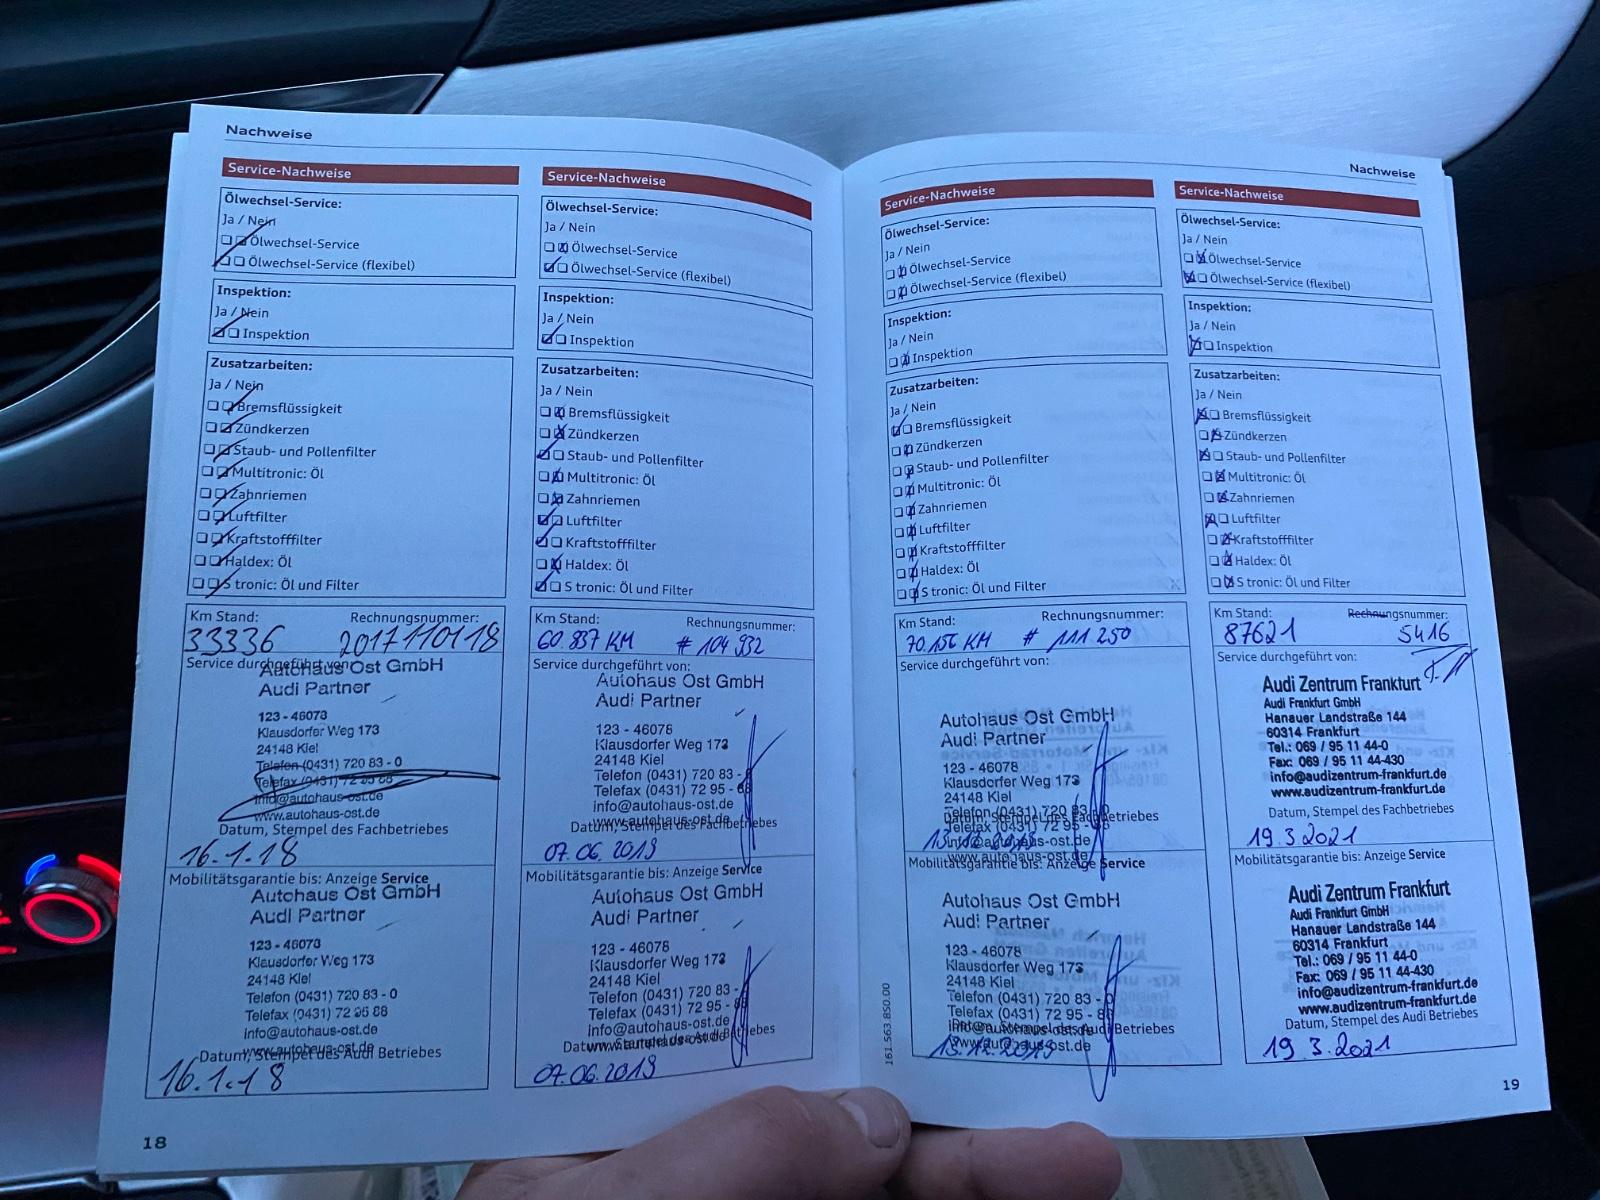 Nachweise
Service-Nachweise
Ölwechsel-Service:
Ja / Nein
Ölwechsel-Service
Ölwechsel-Service (flexibel)
Inspektion:
Ja / Nein
Inspektion
Zusatzarbeiten:
Ja / Nein
Bremsflüssigkeit
Zündkerzen
Staub- und Pollenfilter
Multitronic: Öl
Zahnriemen
Luftfilter
Kraftstofffilter
Haldex: Öl
S tronic: Öl und Filter
Km Stand: Rechnungsnummer:
33336 2017110118
Service durchgeführt von:
Autohaus Ost GmbH
Audi Partner
123 - 46078
Klausdorfer Weg 173
24148 Kiel
Telefon (0431) 720 83 - 0
Telefax (0431) 72 95 88
info@autohaus-ost.de
www.autohaus-ost.de
Datum, Stempel des Fachbetriebes
16.1.18
Mobilitätsgarantie bis: Anzeige Service
Autohaus Ost GmbH
Audi Partner
123 - 46078
Klausdorfer Weg 173
24148 Kiel
Telefon (0431) 720 83 - 0
Telefax (0431) 72 95 88
info@autohaus-ost.de
www.autohaus-ost.de
Datum, Stempel des Audi Betriebes
16.1.18
18
Service-Nachweise
Ölwechsel-Service:
Ja / Nein
Ölwechsel-Service
Ölwechsel-Service (flexibel)
Inspektion:
Ja / Nein
Inspektion
Zusatzarbeiten:
Ja / Nein
Bremsflüssigkeit
Zündkerzen
Staub- und Pollenfilter
Multitronic: Öl
Zahnriemen
Luftfilter
Kraftstofffilter
Haldex: Öl
S tronic: Öl und Filter
Km Stand: Rechnungsnummer:
60.837 KM # 104 932
Service durchgeführt von:
Autohaus Ost GmbH
Audi Partner
123 - 46078
Klausdorfer Weg 173
24148 Kiel
Telefon (0431) 720 83 -
Telefax (0431) 72 95 - 88
info@autohaus-ost.de
www.autohaus-ost.de
Datum, Stempel des Fachbetriebes
07.06.2019
Mobilitätsgarantie bis: Anzeige Service
Autohaus Ost GmbH
Audi Partner
123 - 46078
Klausdorfer Weg 173
24148 Kiel
Telefon (0431) 720 83 -
Telefax (0431) 72 95 - 88
info@autohaus-ost.de
www.autohaus-ost.de
Datum, Stempel des Audi Betriebes
07.06.2019
Nachweise
Service-Nachweise
Ölwechsel-Service:
Ja / Nein
Ölwechsel-Service
Ölwechsel-Service (flexibel)
Inspektion:
Ja / Nein
Inspektion
Zusatzarbeiten:
Ja / Nein
Bremsflüssigkeit
Zündkerzen
Staub- und Pollenfilter
Multitronic: Öl
Zahnriemen
Luftfilter
Kraftstofffilter
Haldex: Öl
S tronic: Öl und Filter
Km Stand: Rechnungsnummer:
70.156 KM # 111 250
Service durchgeführt von:
Autohaus Ost GmbH
Audi Partner
123 - 46078
Klausdorfer Weg 173
24148 Kiel
Telefon (0431) 720 83 - 0
Telefax (0431) 72 95 - 88
info@autohaus-ost.de
www.autohaus-ost.de
Datum, Stempel des Fachbetriebes
13.12.2019
Mobilitätsgarantie bis: Anzeige Service
Autohaus Ost GmbH
Audi Partner
123 - 46078
Klausdorfer Weg 173
24148 Kiel
Telefon (0431) 720 83 - 0
Telefax (0431) 72 95 - 88
info@autohaus-ost.de
www.autohaus-ost.de
Datum, Stempel des Audi Betriebes
13.12.2019
161.563.850.00
Service-Nachweise
Ölwechsel-Service:
Ja / Nein
Ölwechsel-Service
Ölwechsel-Service (flexibel)
Inspektion:
Ja / Nein
Inspektion
Zusatzarbeiten:
Ja / Nein
Bremsflüssigkeit
Zündkerzen
Staub- und Pollenfilter
Multitronic: Öl
Zahnriemen
Luftfilter
Kraftstofffilter
Haldex: Öl
S tronic: Öl und Filter
Km Stand: Rechnungsnummer:
87621 5416
Service durchgeführt von:
Audi Zentrum Frankfurt
Audi Frankfurt GmbH
Hanauer Landstraße 144
60314 Frankfurt
Tel.: 069 / 95 11 44-0
Fax: 069 / 95 11 44-430
info@audizentrum-frankfurt.de
www.audizentrum-frankfurt.de
Datum, Stempel des Fachbetriebes
19.3.2021
Mobilitätsgarantie bis: Anzeige Service
Audi Zentrum Frankfurt
Audi Frankfurt GmbH
Hanauer Landstraße 144
60314 Frankfurt
Tel.: 069 / 95 11 44-0
Fax: 069 / 95 11 44-430
info@audizentrum-frankfurt.de
www.audizentrum-frankfurt.de
Datum, Stempel des Audi Betriebes
19.3.2021
19